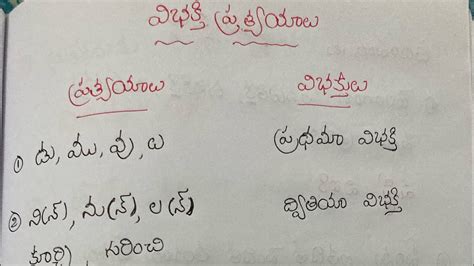 విభక్తి ప్రత్యయాలు
ప్రత్యయాలు విభక్తులు
① డు, ము, వు, లు ప్రథమా విభక్తి
② ని(న్), ను(న్), ల(న్) ద్వితియా విభక్తి
కూర్చి, గురించి